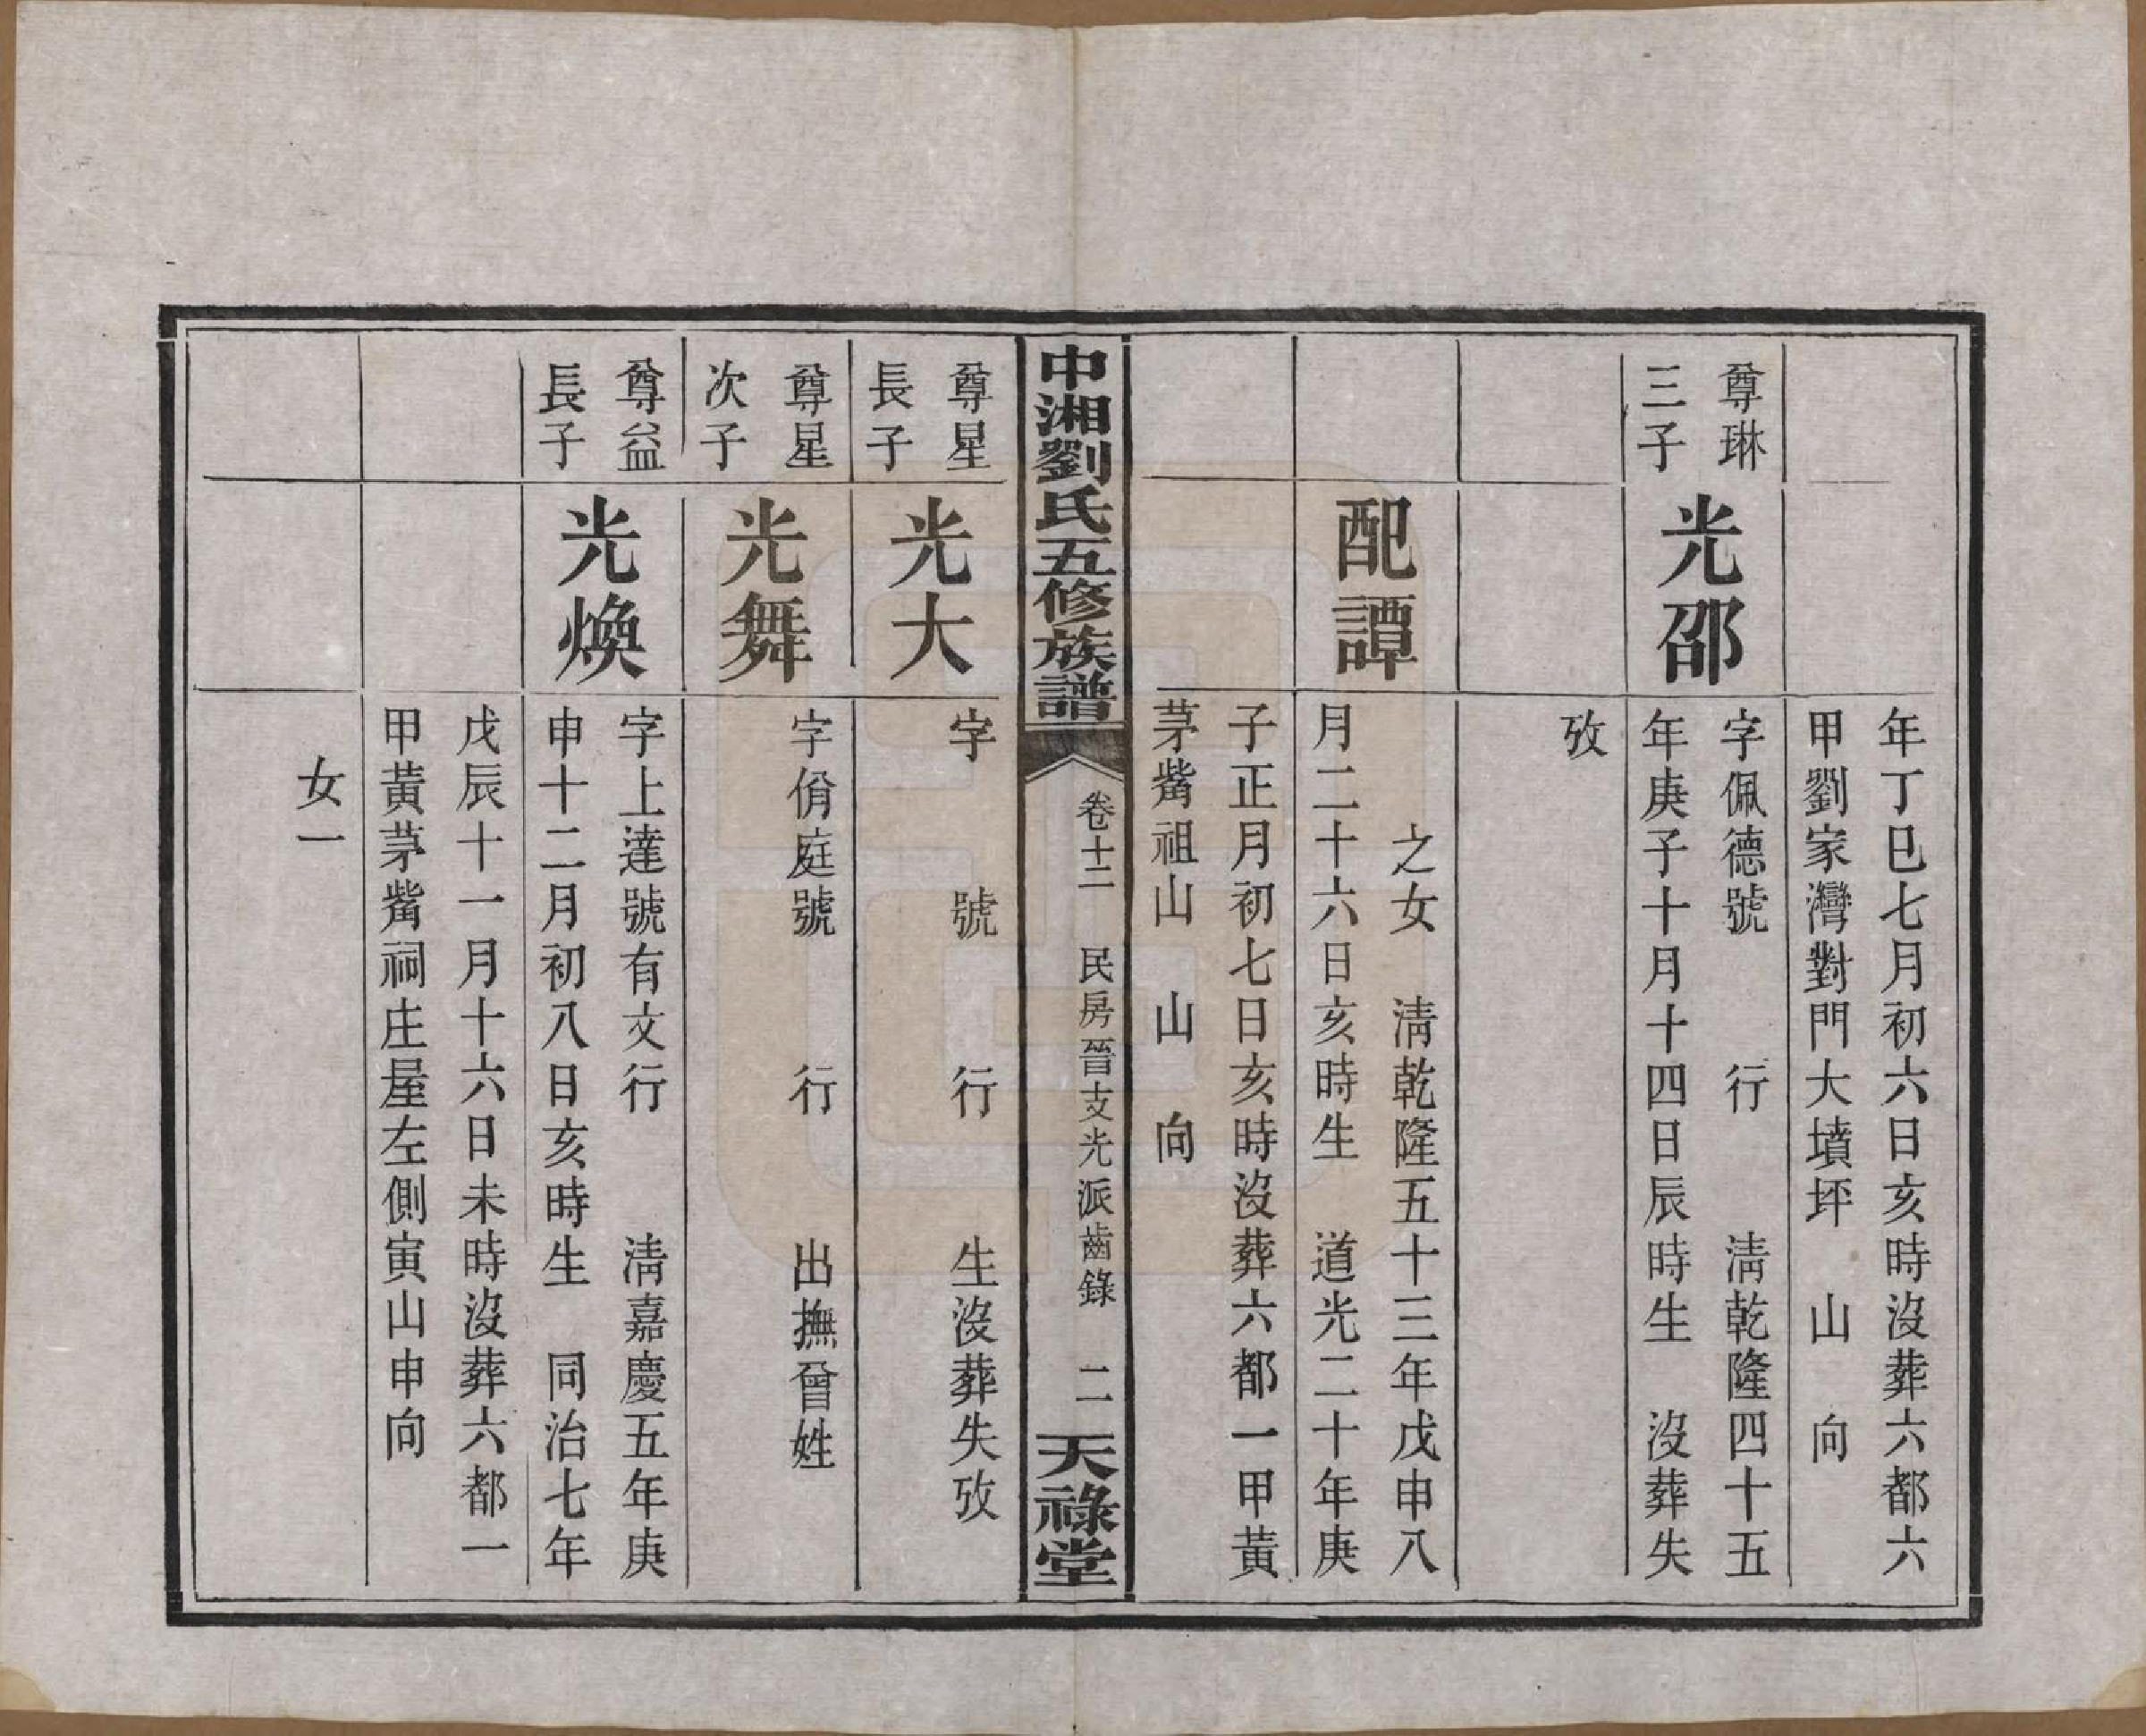 年丁巳七月初六日亥時沒葬六都六
甲劉家灣對門大墳坪　山　向
尊琳
三子
光邵
字佩德號　　行　　清乾隆四十五
年庚子十月十四日辰時生　沒葬失
攷
配譚
之女　清乾隆五十三年戊申八
月二十六日亥時生　道光二十年庚
子正月初七日亥時沒葬六都一甲黃
茅觜祖山　山　向
中湘劉氏五修族譜
卷十二　民房晉支光派齒錄　二
天祿堂
尊星
長子
光大
字　　號　　行　　生沒葬失攷
尊星
次子
光舞
字佾庭號　　行　　出撫曾姓
尊益
長子
光煥
字上達號有文行　　清嘉慶五年庚
申十二月初八日亥時生　同治七年
戊辰十一月十六日未時沒葬六都一
甲黃茅觜祠庄屋左側寅山申向
女一